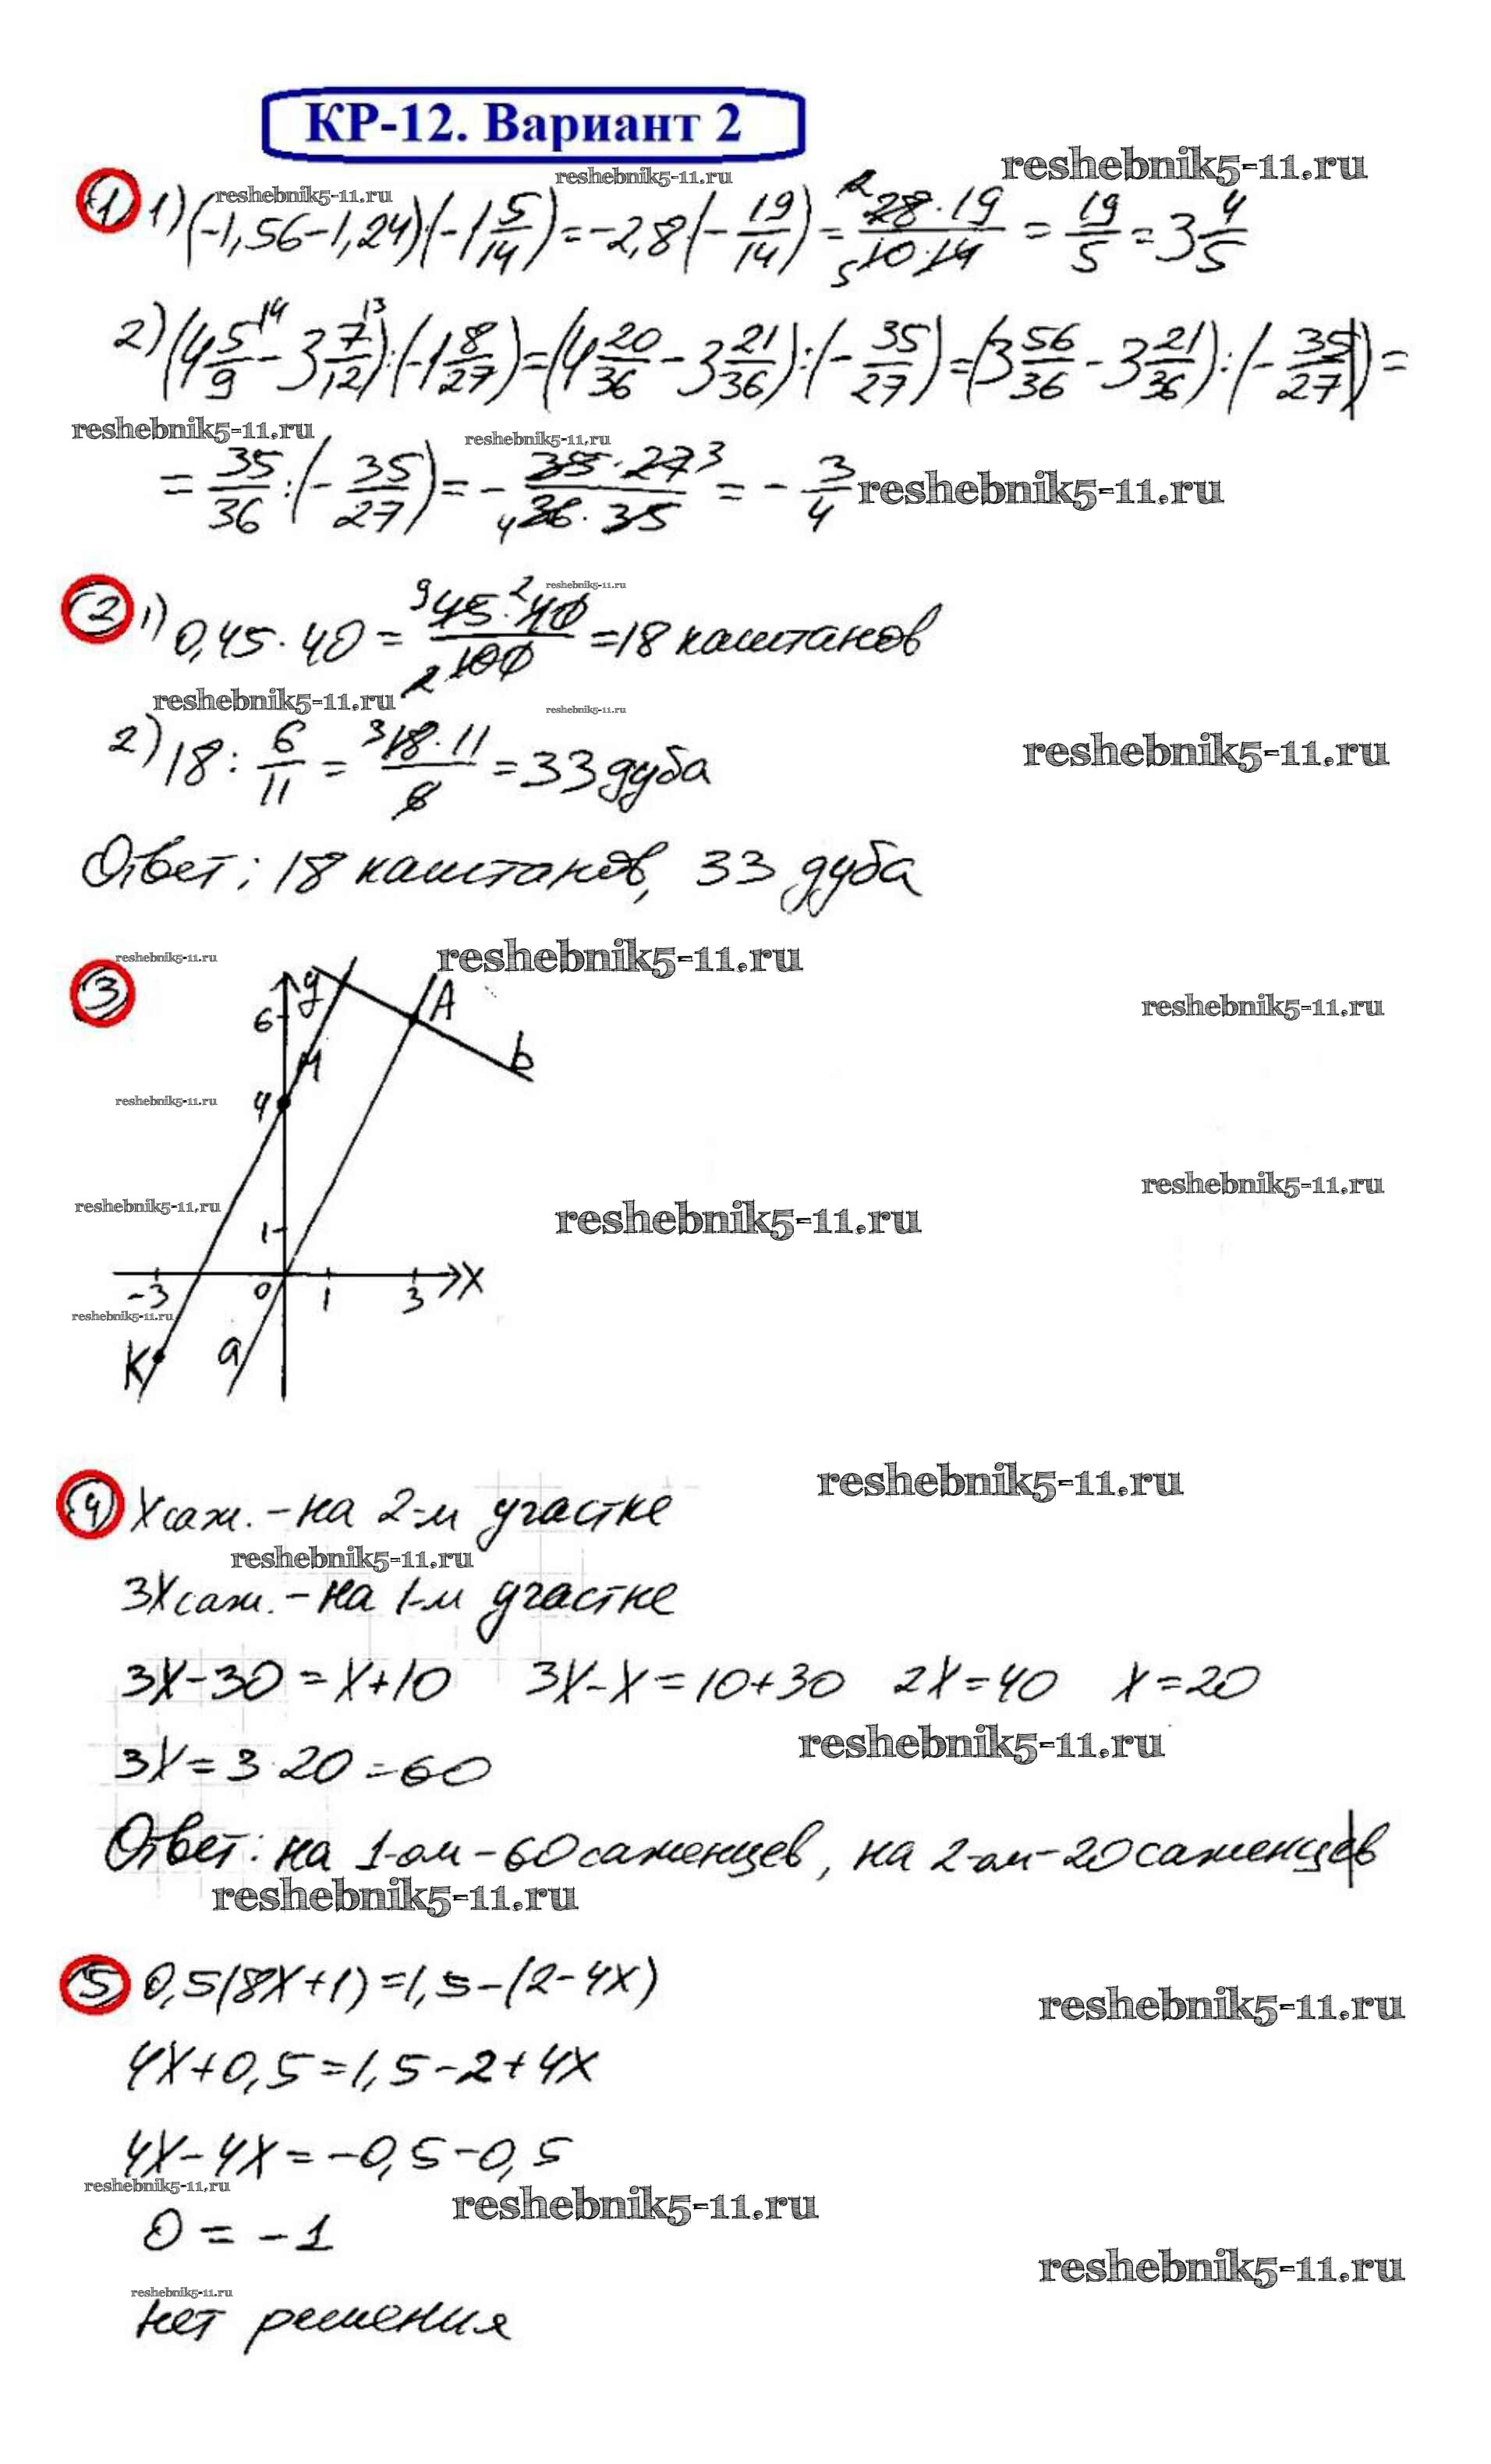 КР-12. Вариант 2
reshebnik5-11.ru
reshebnik5-11.ru
reshebnik5-11.ru
1 1) (-1,56-1,24)·(-1 5/14) = -2,8·(-19/14) = 28·19/10·14 = 19/5 = 3 4/5
2) (4 5/9 - 3 7/12):(-1 8/27) = (4 20/36 - 3 21/36):(-35/27) = (3 56/36 - 3 21/36):(-35/27) =
reshebnik5-11.ru
reshebnik5-11.ru
= 35/36:(-35/27) = - 35·27/36·35 = - 3/4
reshebnik5-11.ru
reshebnik5-11.ru
2 1) 0,45·40 = 45·40/100 = 18 каштанов
reshebnik5-11.ru
reshebnik5-11.ru
2) 18: 6/11 = 18·11/6 = 33 дуба
reshebnik5-11.ru
Ответ: 18 каштанов, 33 дуба
reshebnik5-11.ru
reshebnik5-11.ru
3
y
A
6
reshebnik5-11.ru
M
b
reshebnik5-11.ru
4
reshebnik5-11.ru
reshebnik5-11.ru
reshebnik5-11.ru
1
-3 0 1 3 X
reshebnik5-11.ru
K a
reshebnik5-11.ru
4 X саж. - на 2-м участке
reshebnik5-11.ru
3X саж. - на 1-м участке
3X-30=X+10 3X-X=10+30 2X=40 X=20
reshebnik5-11.ru
3X=3·20=60
Ответ: на 1-ом - 60 саженцев, на 2-ом - 20 саженцев
reshebnik5-11.ru
5 0,5(8X+1)=1,5-(2-4X)
reshebnik5-11.ru
4X+0,5=1,5-2+4X
4X-4X=-0,5-0,5
reshebnik5-11.ru
reshebnik5-11.ru
0=-1
reshebnik5-11.ru
reshebnik5-11.ru
нет решения